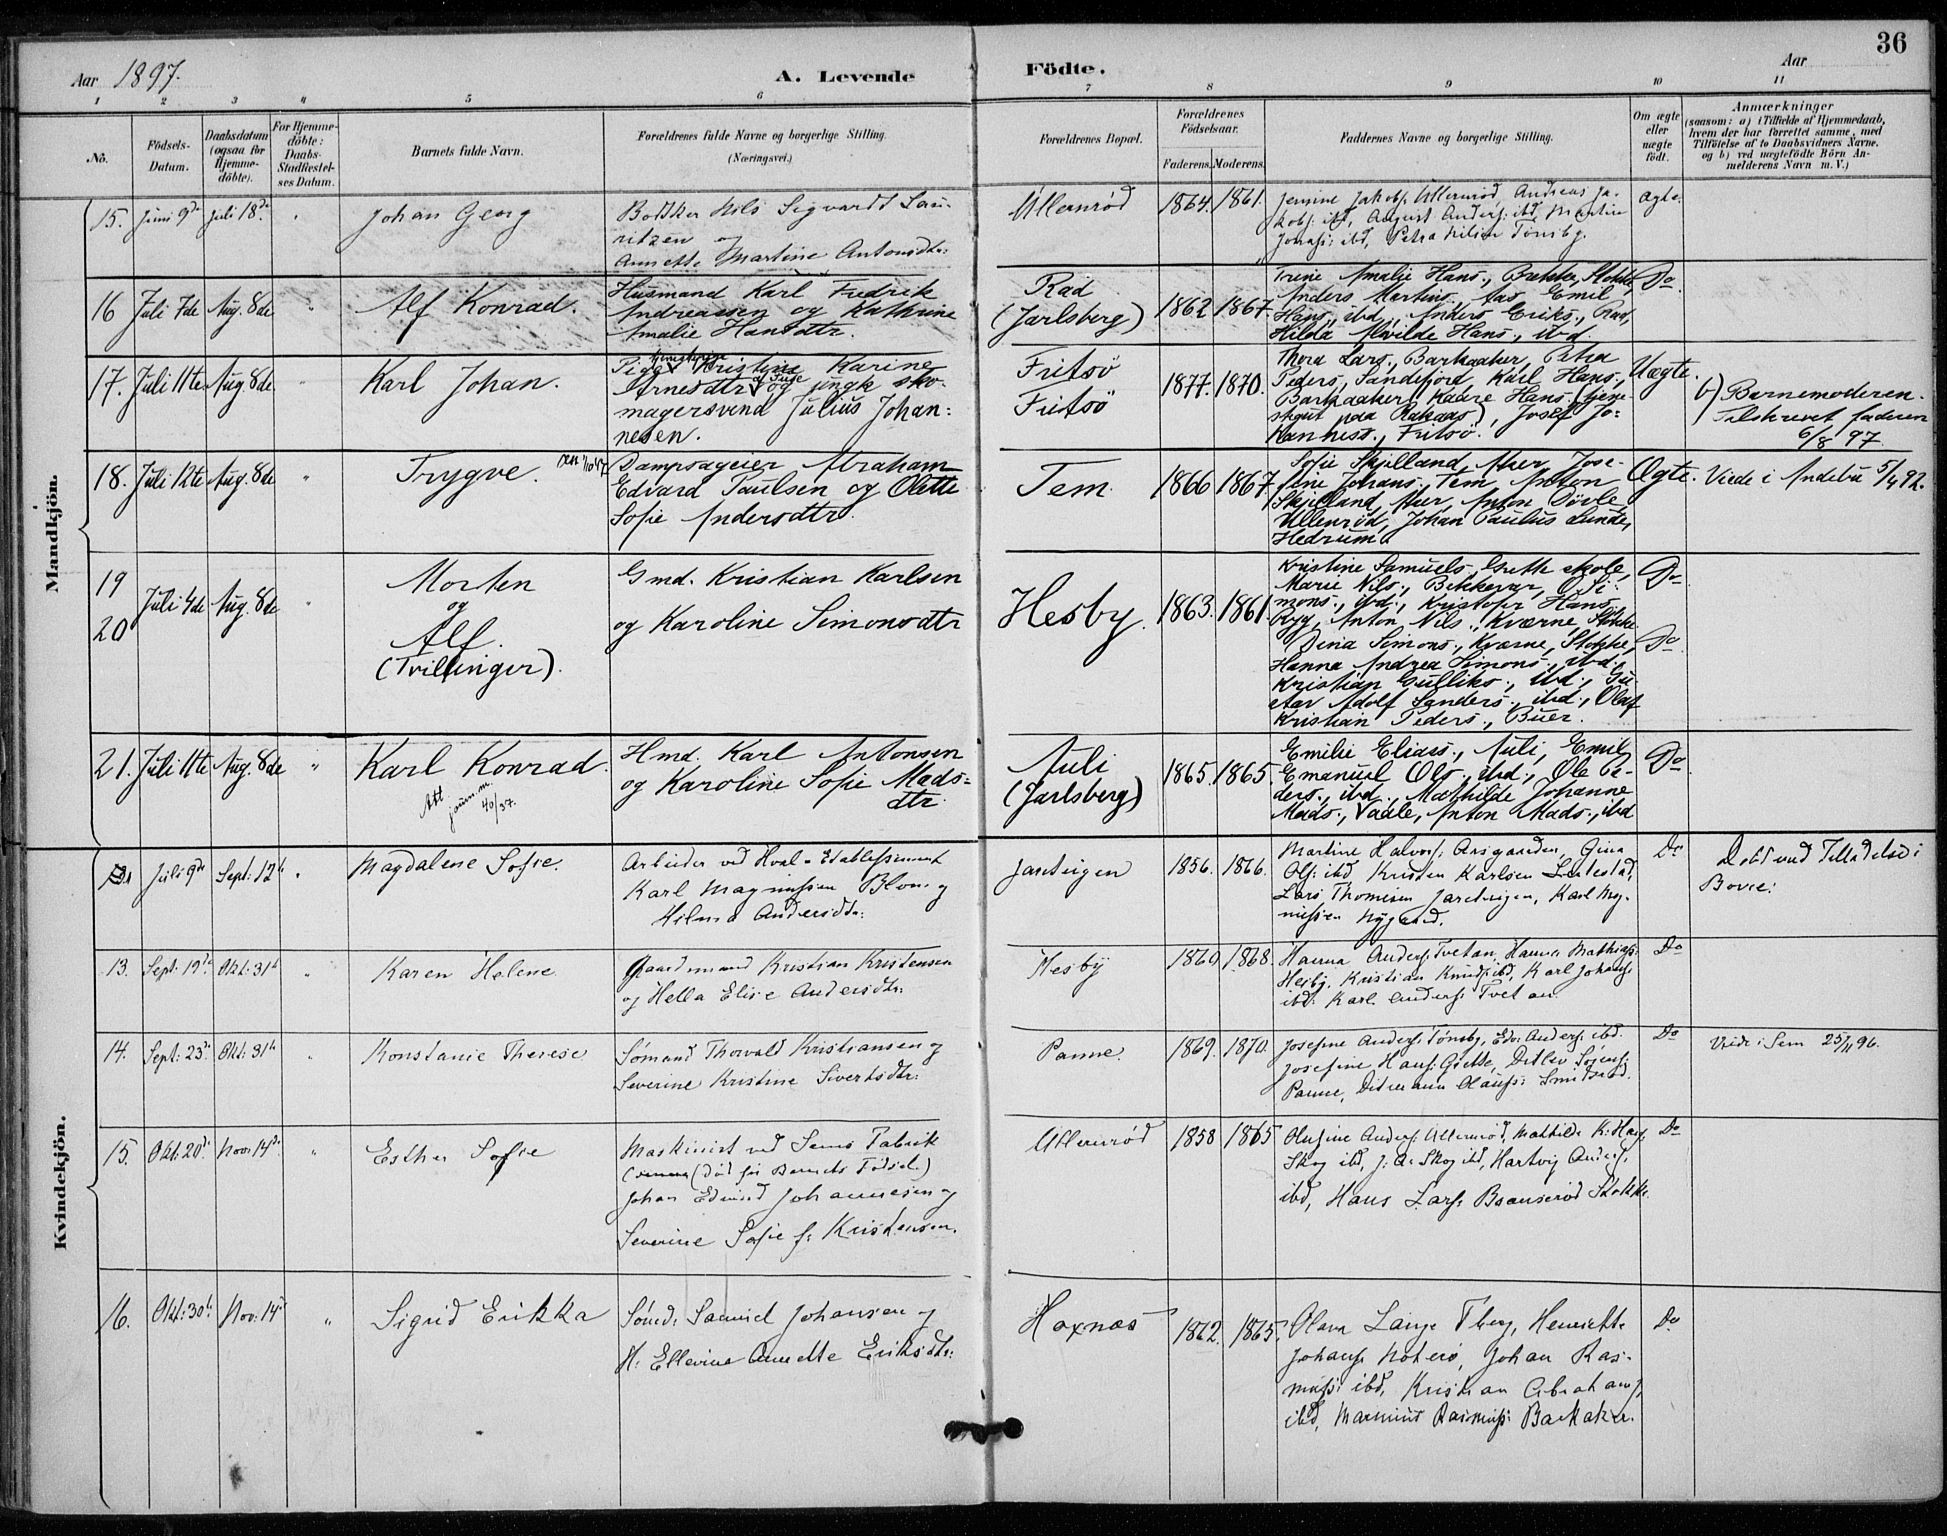 36
Aar 1897.
A. Levende
Födte.
Aar
1 2 3 4 5 6 7 8 9 10 11
No.
Födsels-Datum.
Daabsdatum (ogsaa for Hjemme-döbte).
For Hjemme-döbte: Daabs-Stadfæstel-ses Datum.
Barnets fulde Navn.
Forældrenes fulde Navne og borgerlige Stilling.
(Næringsvei.)
Forældrenes Bopæl.
Forældrenes Födselsaar.
Faderens. Moderens.
Faddernes Navne og borgerlige Stilling.
Om ægte eller uægte födt.
Anmærkninger
(saasom: a) i Tilfælde af Hjemmedaab,
hvem der har forrettet samme, med
Tilföielse af to Daabsvidners Navne,
og b) ved uægtefödte Börn An-
melderens Navn m. V.)
Mandkjön.
15. Juni 9de Juli 18de " Johan Georg
Bødker Nils Sigvardt Lau-
ritzen og
Annette Martine Antonsdtr:
Ullernrød 1864. 1861.
Jensine Jakobs: Ullernrød, Andreas Ja-
kobs: ibd, August Anders: ibd, Martin
Jonass: ibd, Petra Nilsen Tønsbg.
Ægte.
16 Juli 7de Aug. 8de " Alf Konrad.
Husmand Karl Fredrik
Andreassen og Kathrine
Amalie Hansdtr.
Rad
(Jarlsberg) 1862 1867.
Trine Amalie Hans., Bakke, Stokke,
Anders Martins., Aas, Emil
Hans., ibd., Anders Eriks., Rad,
Hilda Alvilde Hans., ibd.
Do
17. Juli 11te Aug 8de " Karl Johan.
Pige Kristine Karine
Arnesdtr og ungk. sko-
magersvend Julius Johan-
nesen.
Fritsö
Fritsö
1877. 1870.
Thora Lars., Barkaaker, Petra
Peders., Sandefjord, Karl Hans.,
Barkaaker, Kaare Hans. (tjene-
stegut paa Rakaas), Josef Jo-
hanness., Fritsö.
Uægte.
b) Barnemoderen.
Tilskrevet faderen
6/8 97
18. Juli 12te Aug. 8de " Trygve.
Dampsageier Abraham
Edvard Paulsen og Olette
Sofie Andersdtr.
Tem 1866 1867
Sofie Skjelland, Aker, Jose-
fine Johans., Tem, Anton
Skjelland, Aker, Anton Dörle,
Ullenröd, Johan Paulus Lunde,
Hedrum.
Ægte. Viede i Andebu 5/4 92.
19
20 Juli 4de Aug. 8de " Morten
og
Alf.
(Tvillinger).
Gmd. Kristian Karlsen
og Karoline Simonsdtr
Hesby. 1863. 1861.
Kristine Samuels., Greth skole,
Marie Nils., Bekkevar, O. Si-
mons., ibd., Kristofer Hans.,
Ryg, Anton Nils., Kværne, Stokke.
Dina Simons., Kværne, Stokke,
Hanna Andrea Simons., ibd.,
Kristian Gulliks., ibd., Gu-
stav Adolf Sanders., ibd., Olaf
Kristian Peders., Buer.
Do
Do
21. Juli 11te Aug. 8de " Karl Konrad.
Att.
40/37.
Hmd. Karl Antonsen
og Karoline Sofie Mads-
dtr.
Auli
(Jarlsberg) 1865. 1865.
Emilie Elias., Auli, Emil
Emanuel Ols., ibd., Ole Pe-
ders., ibd., Mathilde Johanne
Mads., Vaale, Anton Mads., ibd
Do
Kvindekjön.
Juli 9de Sept: 12te " Magdalene Sofie.
Arbeider ved Hval-Etablissement
Karl Magnussen Blom og
Hilma Andersdtr:
Jarteigen 1856. 1866.
Martine Halvors: Aasgaarden, Gina
Ols: ibd Kristen Karlsen Lerstad,
Lars Thomesen Jarteigen, Karl Mag-
nussen Nygaard.
Do Døbt ved Tilladelse i
13. Sept: 19de Okt: 31te " Karen Helene
Gaardmand Kristian Kristensen
og Hella Elise Andersdtr:
Hesby 1860. 1868.
Hanna Anders: Tvetan, Hanna Mathias:
Hesby, Kristian Knuds: ibd, Karl Johans:
ibd: Karl Anders: Tvetan.
Do
14. Sept: 23de Okt: 31te " Konstanie Therese
Sømand Thorvald Kristiansen og
Severine Kristine Sivertsdtr:
Panne. 1869. 1870.
Josefine Anders: Tønsbg, Edv: Anders: ibd.
Josefine Hans: Gjette, Detlev Sørens:
Panne, Ditmann Olauss: Smidsrød.
Do Viede i Sem 25/11 96.
15. Okt: 20de Nov: 14de " Esther Sofie
Maskinist ved Sems Fabrik
(død før Barnets Fødsel.)
Johan Edvard Johannesen og
Severine Sofie f. Kristensen.
Ullernrød 1858 1865
Olufine Anders: Ullernrød, Mathilde K. Hans:
Skog ibd, J. A. Skog ibd, Hartvig Anders:
ibd, Hans Lars: Bsanserød Stokke.
Do
16. Okt: 30te Nov: 14de " Sigrid Erikka
Sømd: Samuel Johansen og
H: Ellevine Annette Eriksdtr:
Haxnæs 1862. 1865.
Olava Lange Tbrg, Henriette
Johans: Nøterø, Johan Ras-
muss: ibd, Kristian Abrahams:
ibd, Marinius Rasmuss: Barkaker.
Do